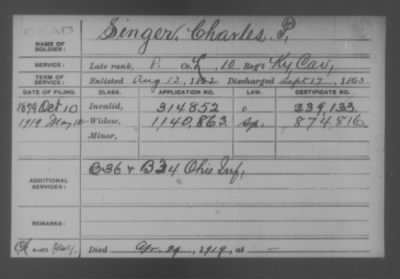 DEAD
NAME OF SOLDIER: Singer, Charles P,
SERVICE: Late rank, P. Co. L, 10 Reg't Ky Cav,
TERM OF SERVICE: Enlisted Aug 13, 1862 Discharged Sept 17, 1863
DATE OF FILING. CLASS. APPLICATION NO. LAW. CERTIFICATE NO.
1879 Oct 10 Invalid, 314.852 239,133,
1919 May 12 Widow, 1,140,863 874,816,
Minor,
ADDITIONAL SERVICES: B36 & B34 Ohio Inf,
REMARKS:
Died Apr. 29, 1919, at —